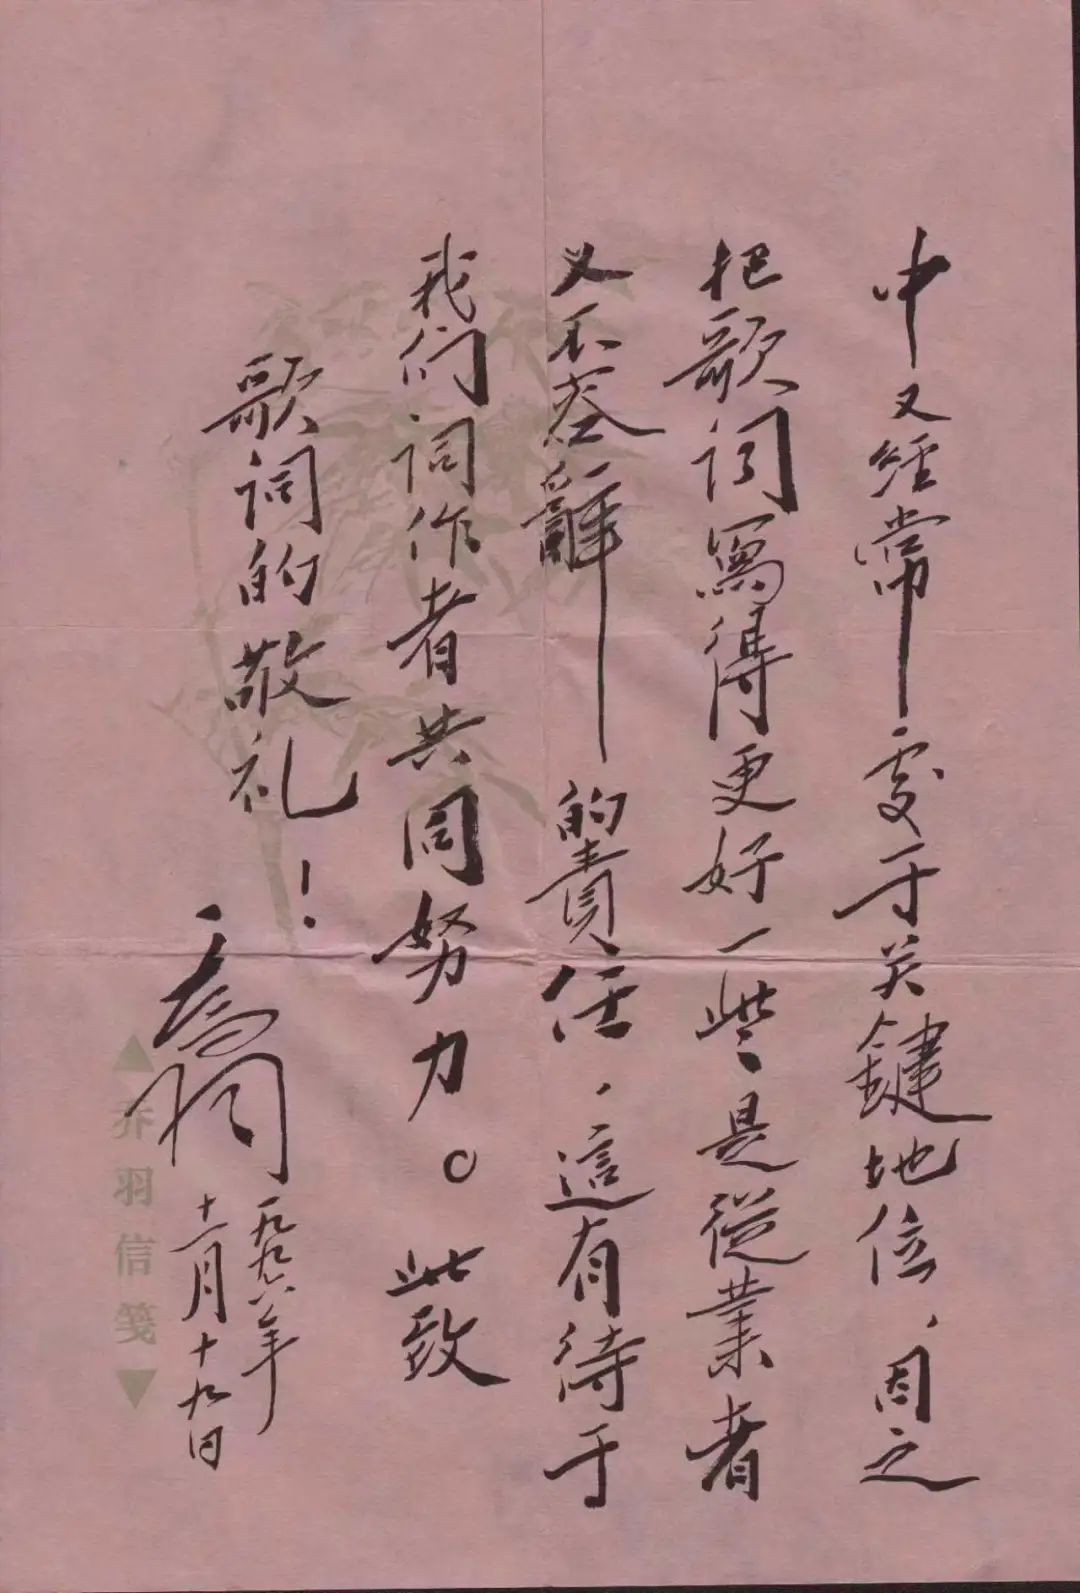 中又經常處于关鍵地位、因之
把歌词寫得更好一些是從業者
义不容辭的責任，這有待于
我们词作者共同努力。此致
歌词的敬礼！
乔羽
一九九六年
十一月十九日
▲乔羽信笺▼